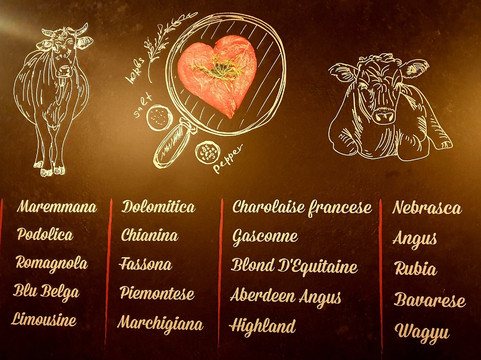 herbs
salt
pepper
Maremmana
Podolica
Romagnola
Blu Belga
Limousine
Dolomitica
Chianina
Fassona
Piemontese
Marchigiana
Charolaise francese
Gasconne
Blond D'Equitaine
Aberdeen Angus
Highland
Nebrasca
Angus
Rubia
Bavarese
Wagyu